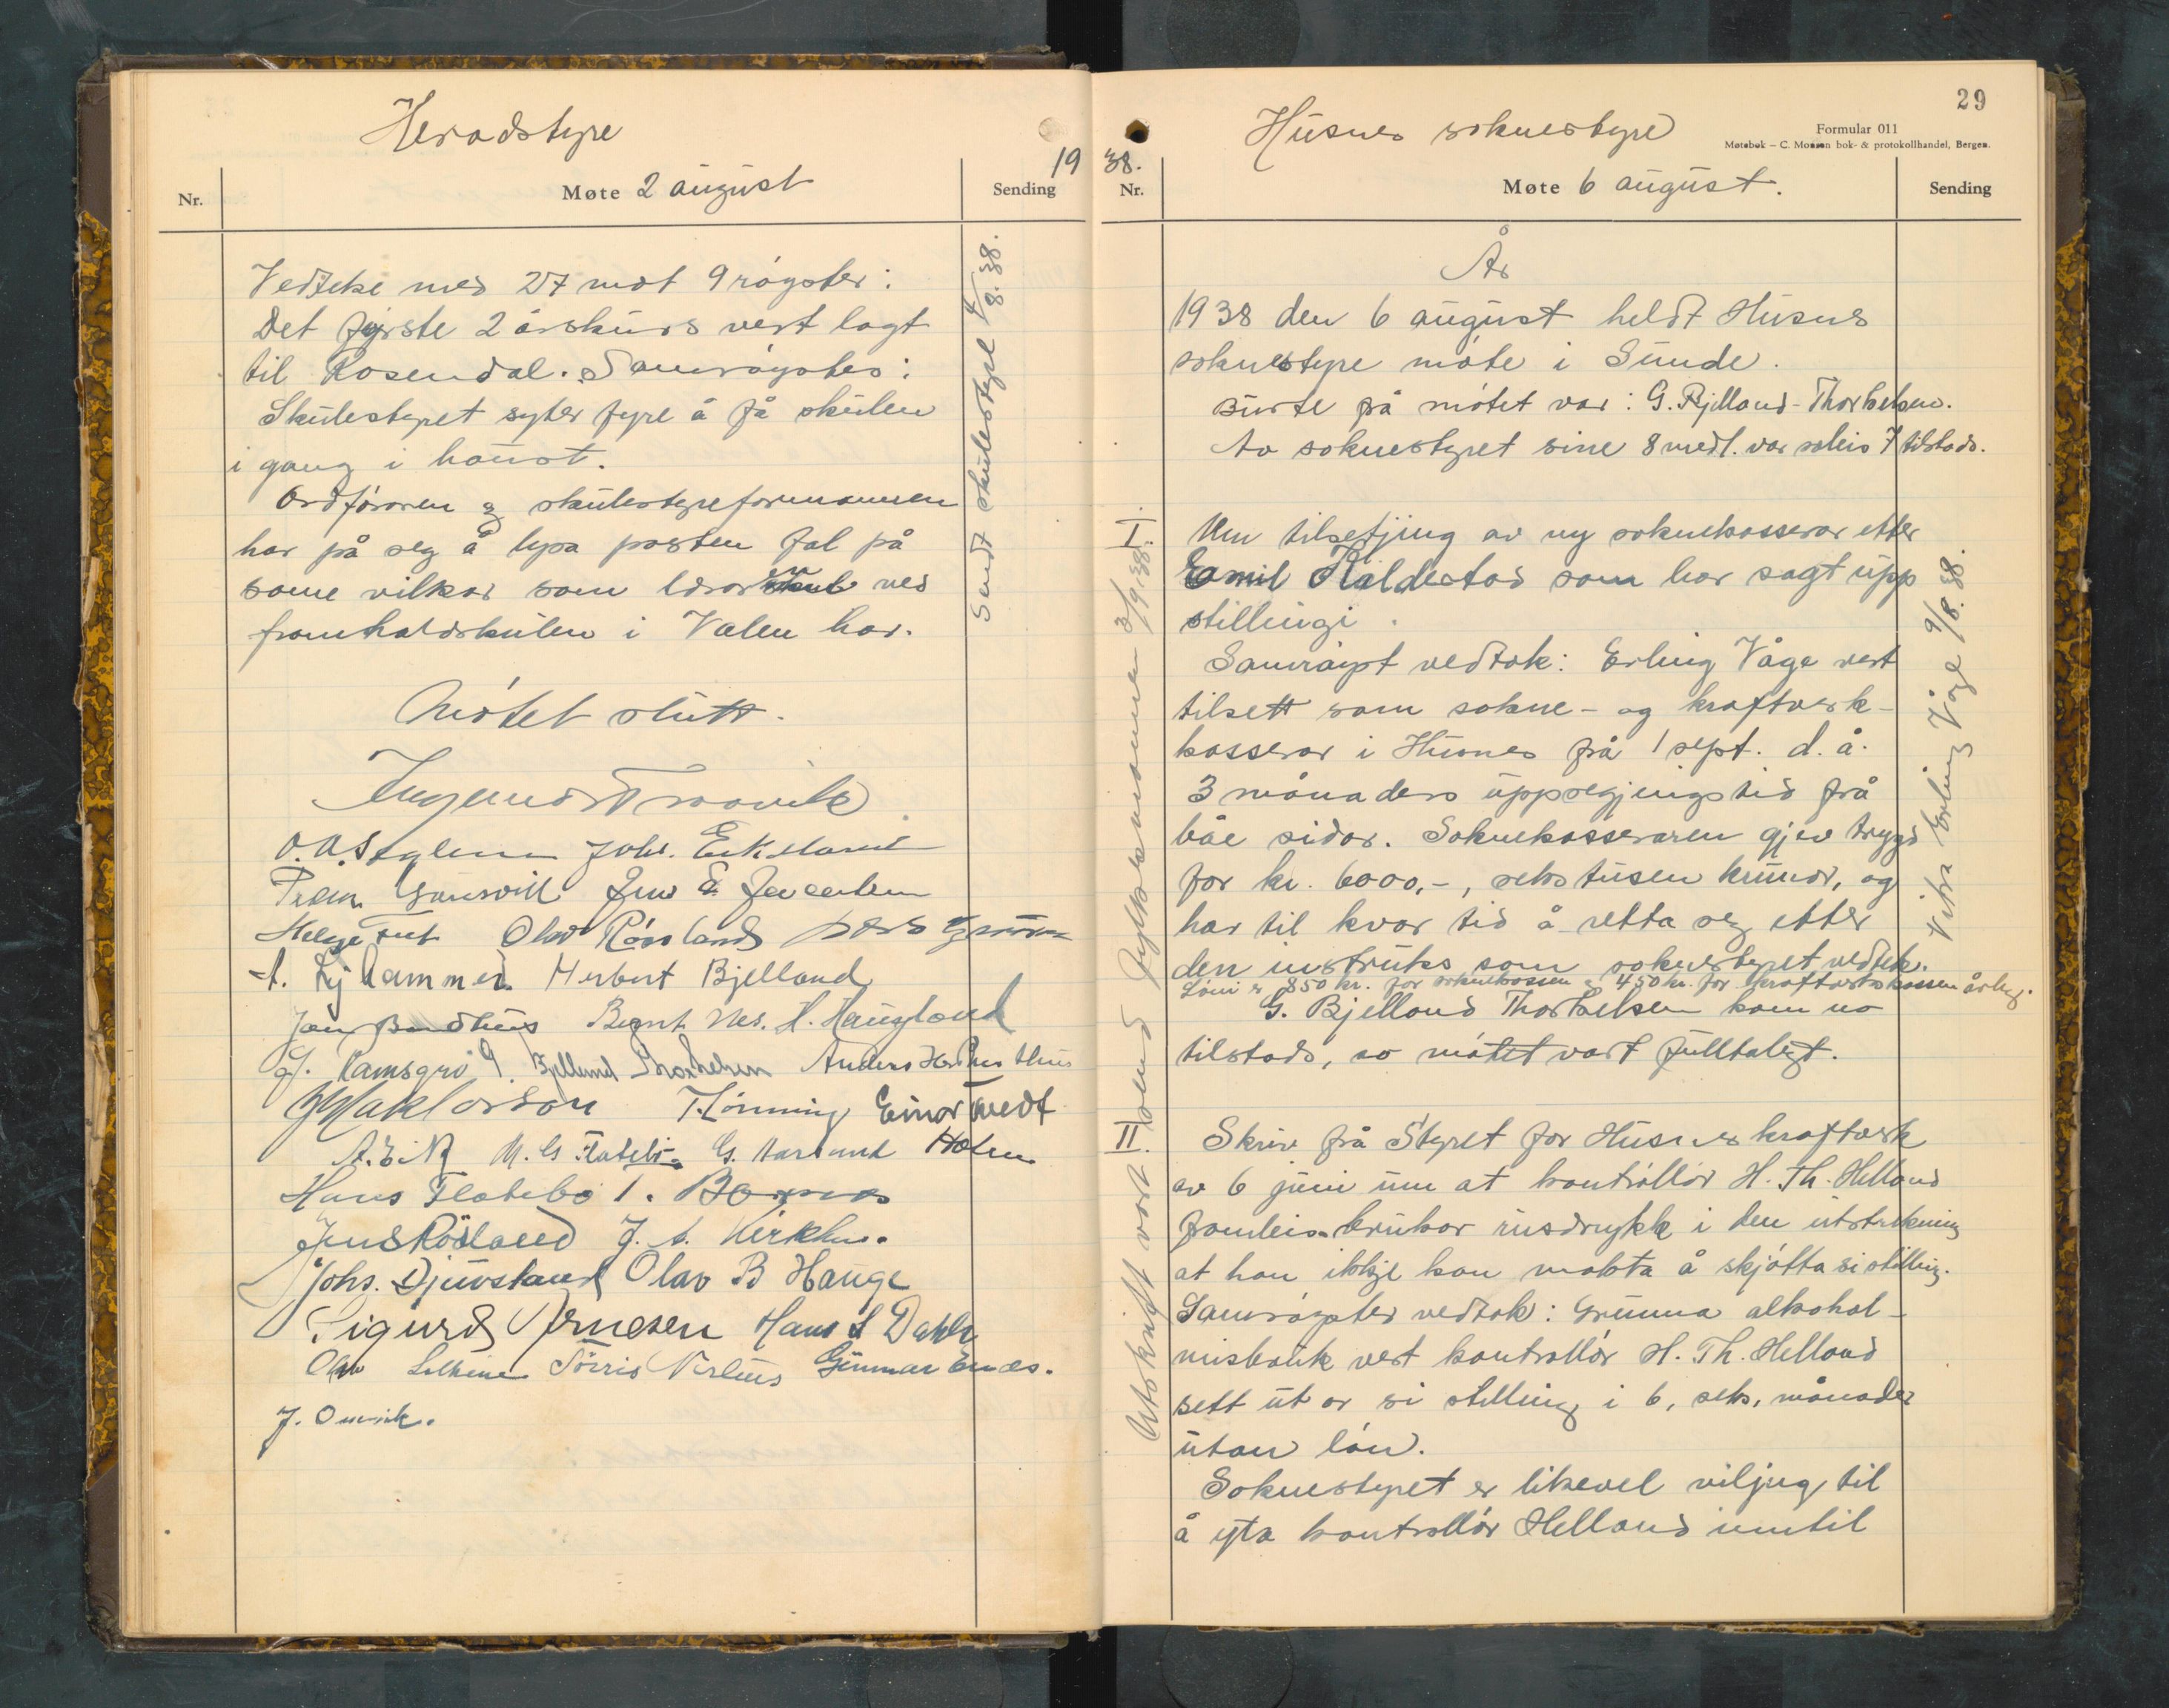 Heradstyre
19
Nr.
Møte 2 august
Sending
Vedteke med 27 mot 9 røyster:
Det fyrste 2 årskurs vert lagt
til Rosendal. Samrøystes:
Skulestyret syter fyre å få skulen
i gang i haust.
Ordføraren og skulestyreformannen
har på seg å lysa posten fal på
same vilkår som lærar ved
framhaldskulen i Valen har.
Møtet slutt.
Sendt skulestyre 4/8.38.
O. A.
Helge Tvet Olav Røssland
Herbert Bjelland
Bernt Nes. H. Haugland
G. Ramsgrø G. Bjelland Thorkelsen Anders H.
T. Lønning Einar Tvedt
Hans Flatebø
Jens Røsland J. A.
Johs. Djuvsland Olav B Hauge
Sigurd Arnesen Hans S Dahle
Olav Gunnar Enes.
J. Omvik.
29
Husnes soknestyre
Formular 011
Møtebok – C. Monsen bok- & protokollhandel, Bergen.
38.
Nr.
Møte 6 august.
Sending
År
1938 den 6 august heldt Husnes
soknestyre møte i Sunde.
Burte på møtet var: G. Bjelland-Thorkelsen.
Av soknestyret sine 8 medl. var soleis 7 tilstads.
I. Um tilsetjing av ny soknekasserar etter
Emil Kaldestad som har sagt upp
stillingi.
Samrøyst vedtok: Erling Våge vert
tilsett som sokne- og kraftverk-
kasserar i Husnes frå 1 sept. d. å.
3 månaders uppsegjingstid frå
båe sidor. Soknekasseraren gjev trygd
for kr. 6000,-, seks tusen krunor, og
har til kvar tid å retta seg etter
den instruks som soknestyret vedtek.
Løni er 850 kr. for soknekassen og 450 kr. for kraftverkskassen årleg.
G. Bjelland Thorkelsen kom no
tilstads, so møtet vart fulltaligt.
II. Skriv frå Styret for Husnes kraftverk
av 6 juni um at kontrollør H. Th. Helland
jamleis brukar rusdrykk i den utstrekning
at han ikkje kan makta å skjøtta si stilling.
Samrøystes vedtok: Grunna alkohol-
misbruk vert kontrollør H. Th. Helland
sett ut or si stilling i 6, seks, månader
utan løn.
Soknestyret er likevel viljug til
å yta kontrollør Helland inntil
Utskrift vart send fylkesmannen 3/9.38.
Utskr. Erling Våge 9/8.38.